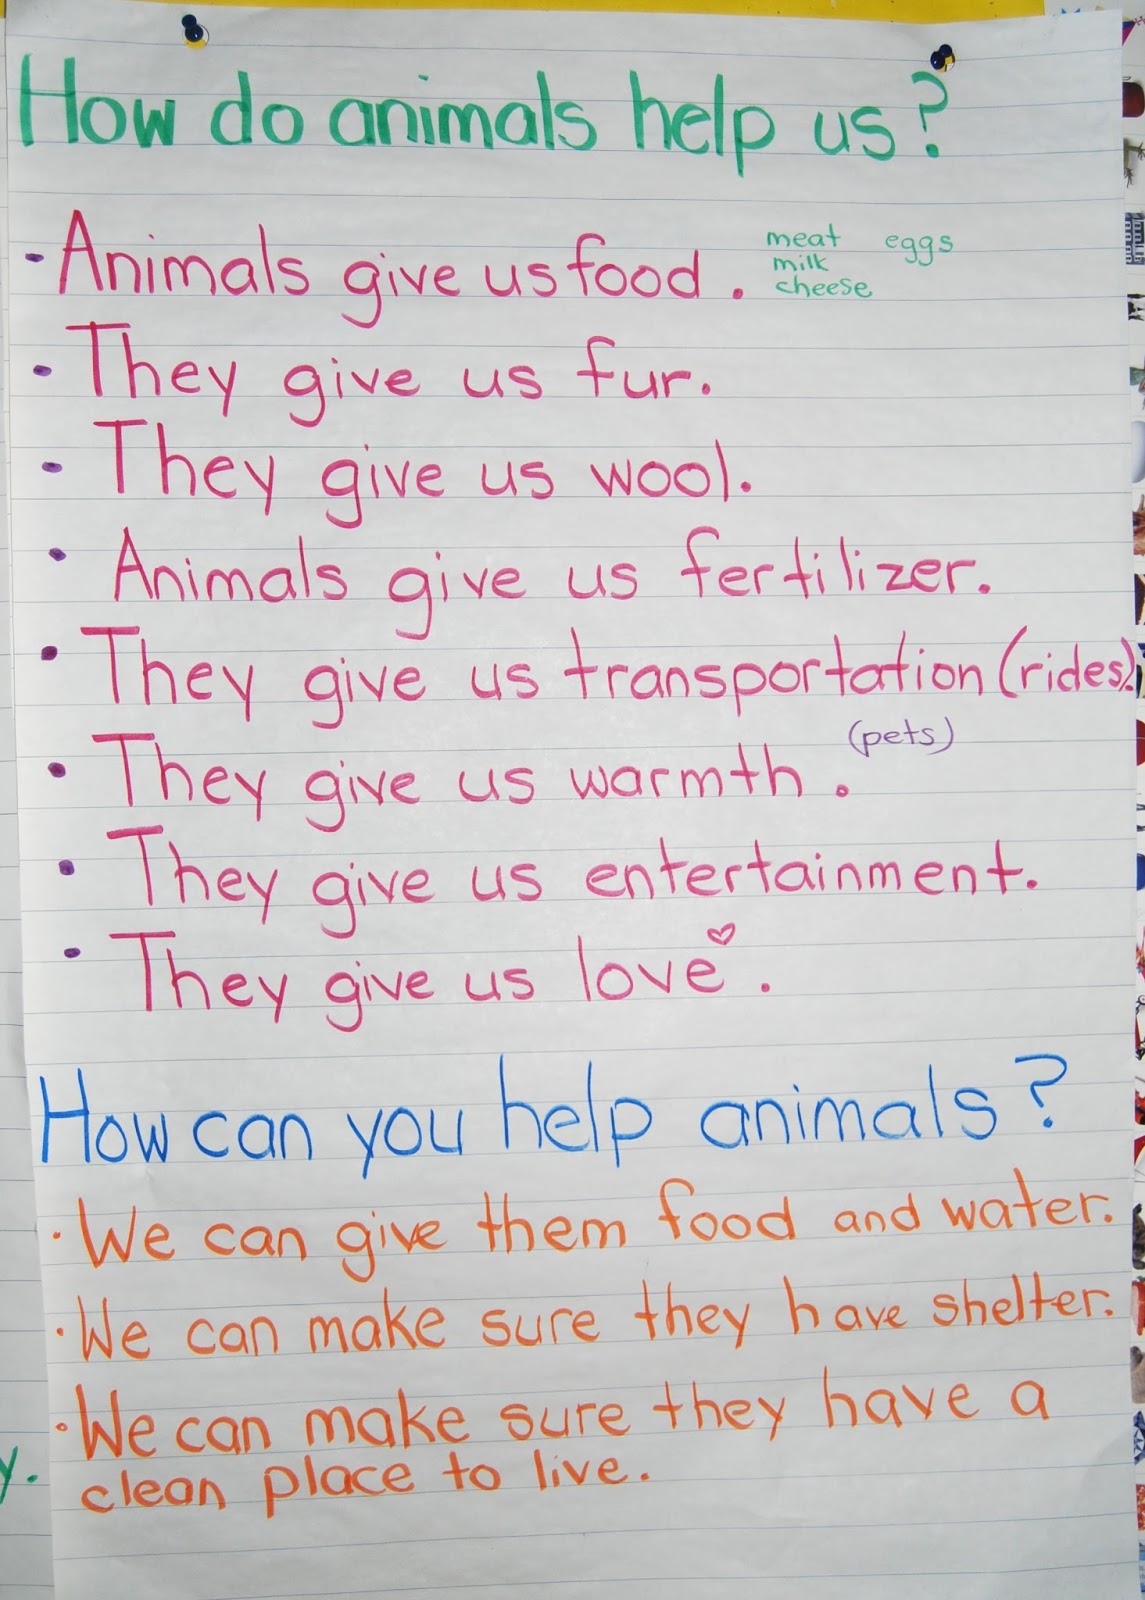 How do animals help us?
- Animals give us food. meat eggs
milk
cheese
- They give us fur.
- They give us wool.
• Animals give us fertilizer.
• They give us transportation (rides).
(pets)
• They give us warmth.
• They give us entertainment.
• They give us love.
How can you help animals?
• We can give them food and water.
• We can make sure they have shelter.
• We can make sure they have a
clean place to live.
y.